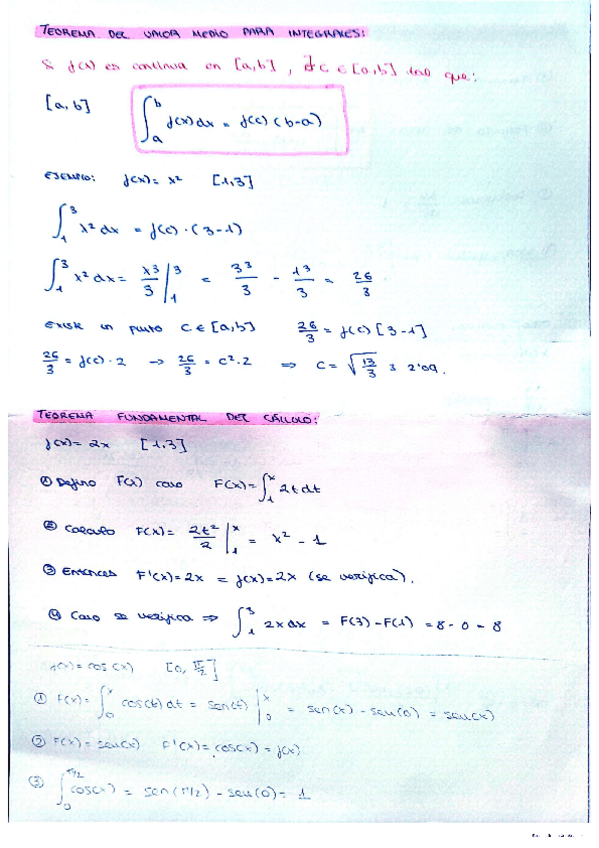 TEOREMA DEL VALOR MEDIO PARA INTEGRALES:
Si f(x) es continua en [a,b], ∃ c ∈ [a,b] tal que:
[a,b] ∫_a^b f(x)dx = f(c) (b-a)
EJEMPLO: f(x) = x² [1,3]
∫_1^3 x² dx = f(c) · (3-1)
∫_1^3 x² dx = x³/3 |_1^3 = 3³/3 - 1³/3 = 26/3
EXISTE un punto c ∈ [a,b] 26/3 = f(c) [3-1]
26/3 = f(c) · 2 → 26/3 = c² · 2 ⇒ c = √(13/3) 2'09.
TEOREMA FUNDAMENTAL DEL CÁLCULO:
f(x) = 2x [1,3]
① Defino F(x) como F(x) = ∫_1^x 2t dt
② Calculo F(x) = 2t²/2 |_1^x = x² - 1
③ Entonces F'(x) = 2x = f(x) = 2x (se verifica).
④ Como se verifica ⇒ ∫_1^3 2x dx = F(3) - F(1) = 8 - 0 = 8
f(x) = cos(x) [0, π/2]
① F(x) = ∫_0^x cos(t) dt = sen(t) |_0^x = sen(x) - sen(0) = sen(x)
② F(x) = sen(x) F'(x) = cos(x) = f(x)
③ ∫_0^{π/2} cos(x) = sen(π/2) - sen(0) = 1